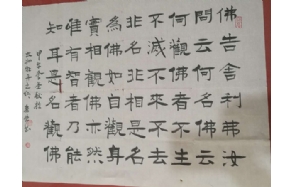 佛告舍利弗汝
問云何名佛云
何觀佛者不生
不滅不來不去
非名非相是名
為佛如自觀身
實相觀佛亦然
唯有智者乃能
知耳是名觀佛